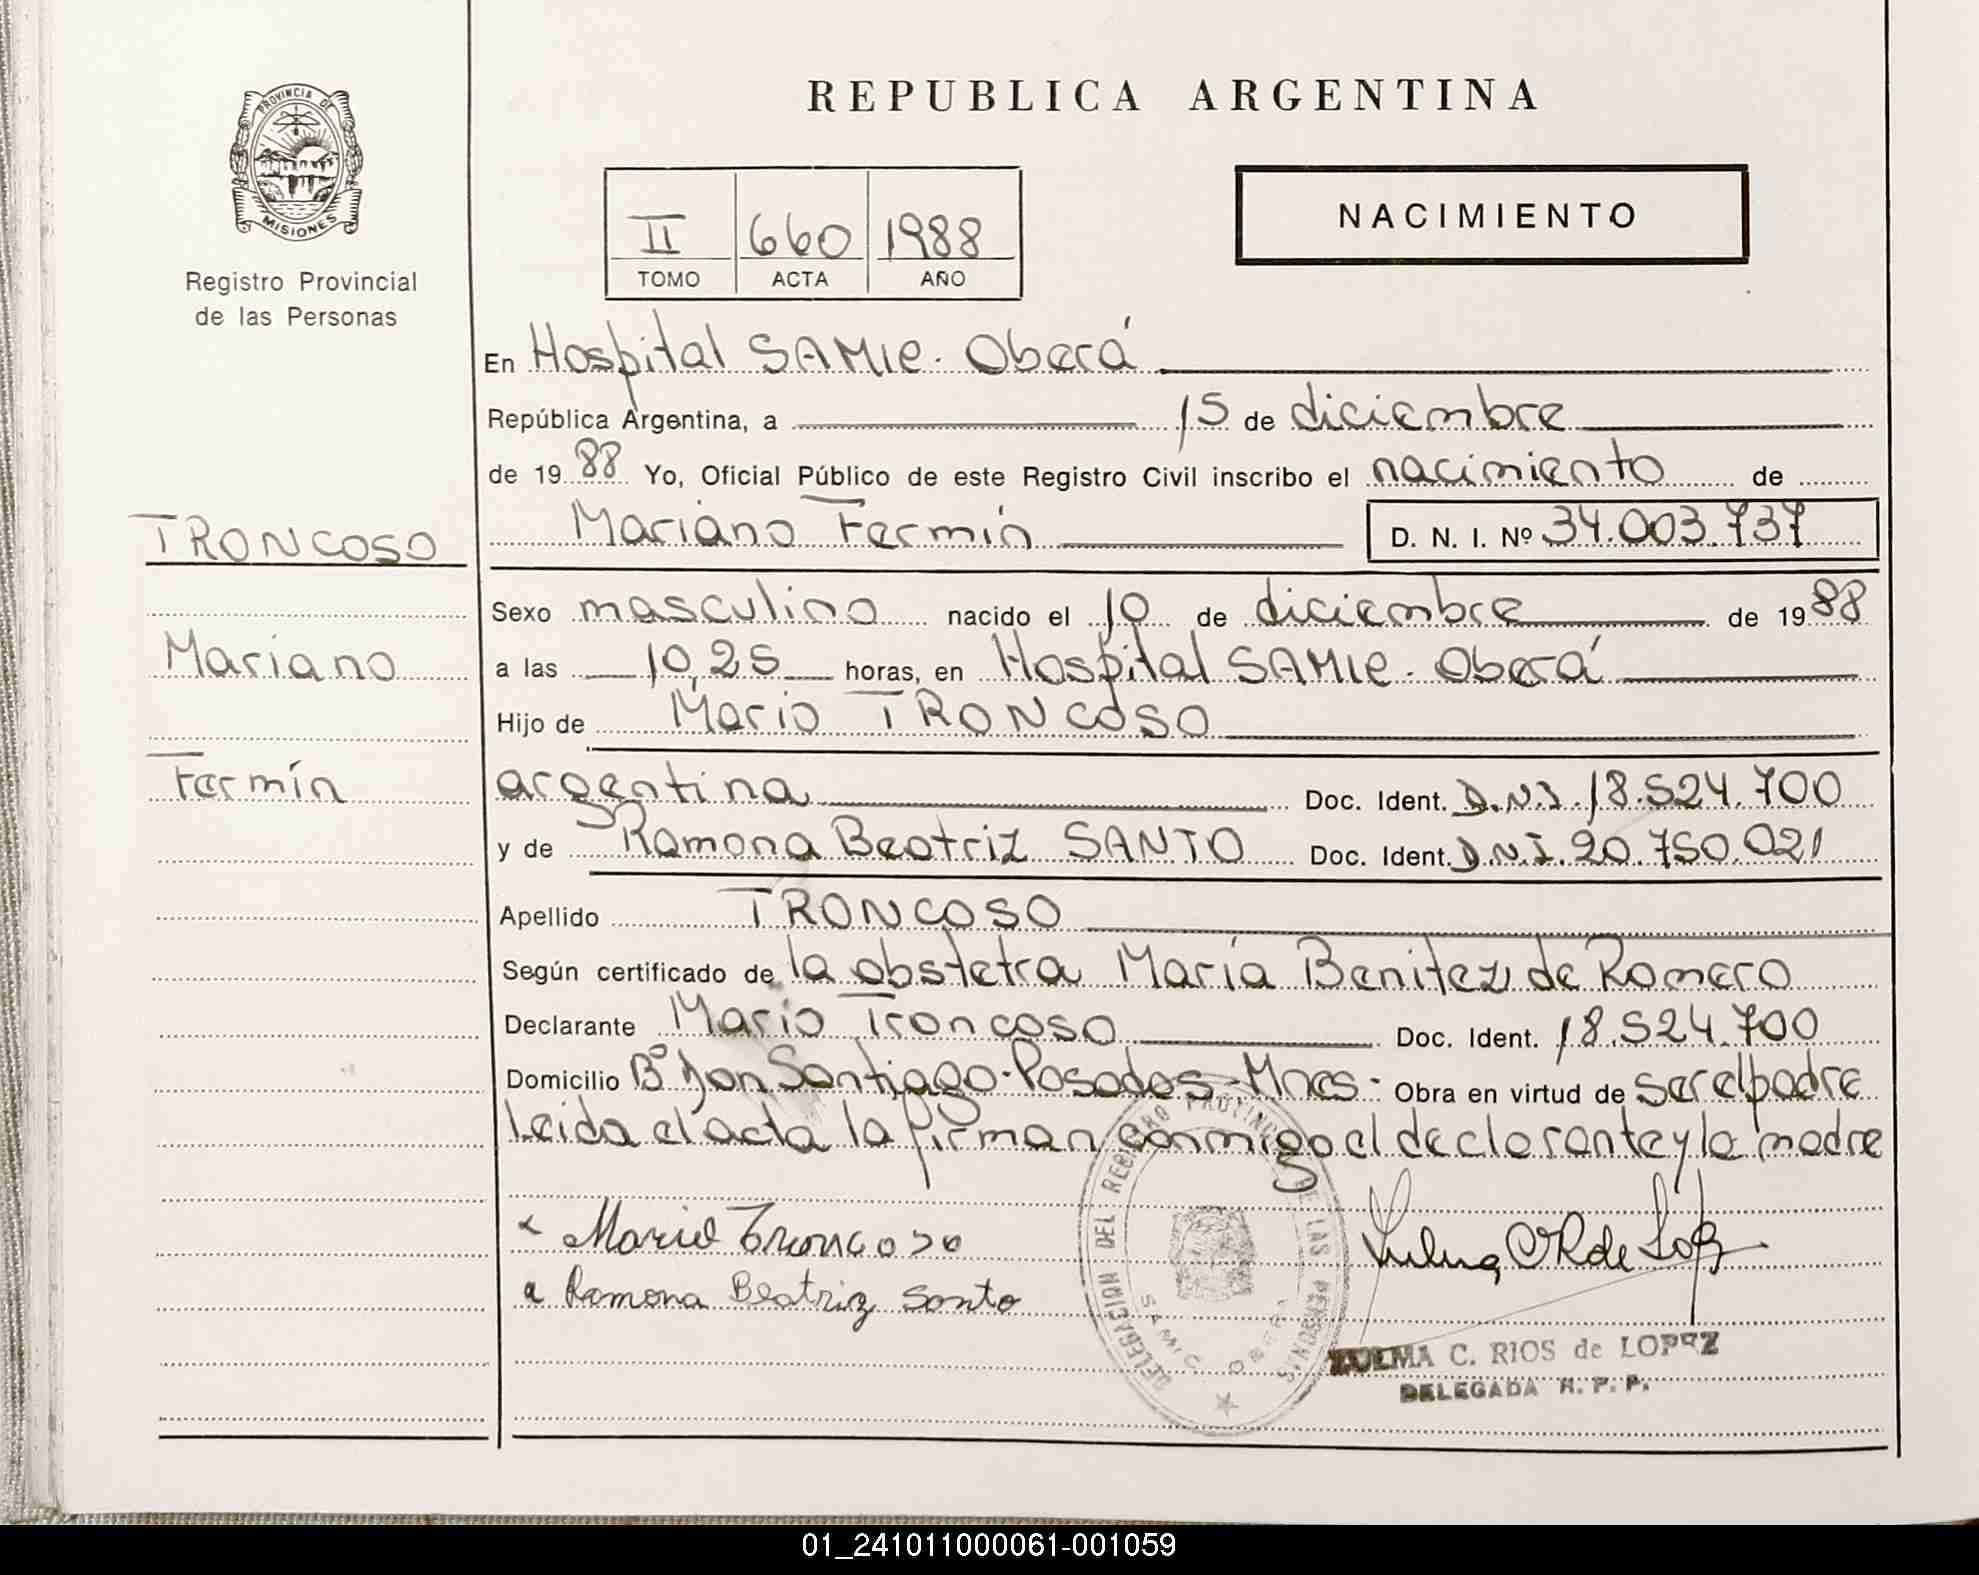 PROVINCIA DE
MISIONES
Registro Provincial
de las Personas
TRONCOSO
Mariano
Fermín
REPUBLICA ARGENTINA
NACIMIENTO
II 660 1988
TOMO ACTA AÑO
En Hospital SAMIC. Oberá
República Argentina, a 15 de diciembre
de 1988 Yo, Oficial Público de este Registro Civil inscribo el nacimiento de
Mariano Fermín D. N. I. Nº 34.003.737
Sexo masculino nacido el 10 de diciembre de 1988
a las 10,25 horas, en Hospital SAMIC. Oberá
Hijo de Mario TRONCOSO
argentina Doc. Ident. D.N.I. 18.524.700
y de Ramona Beatriz SANTO Doc. Ident. D.N.I. 20.750.021
Apellido TRONCOSO
Según certificado de la obstetra María Benitez de Romero
Declarante Mario Troncoso Doc. Ident. 18.524.700
Domicilio Bº Don Santiago-Posadas-Mnes- Obra en virtud de ser el padre
Leida el acta la firman conmigo el declarante y la madre
Mario Troncoso
Ramona Beatriz Santo
DELEGACION DEL REGISTRO PROVINCIAL DE LAS PERSONAS
SAMIC OBERA
ZULMA C. RIOS de LOPEZ
DELEGADA R. P. P.
01_241011000061-001059